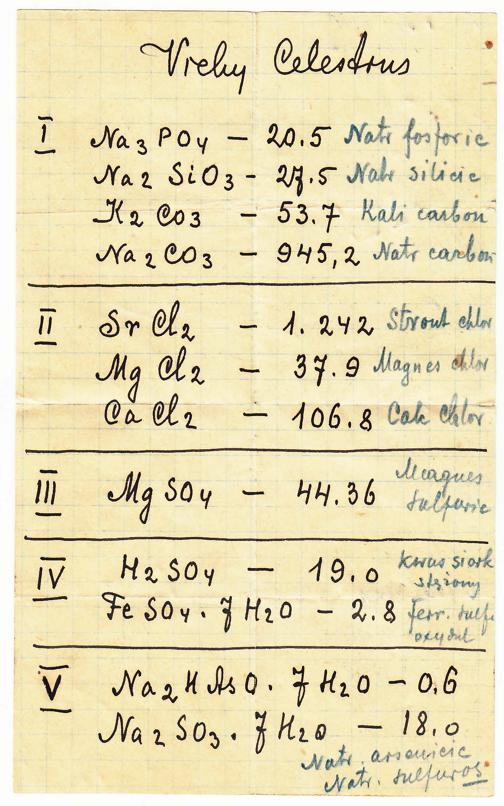 Vichy Celestins
I Na3 PO4 – 20.5 Natr fosforic
Na2 SiO3 - 27.5 Natr silicic
K2 CO3 - 53.7 Kali carbon
Na2CO3 - 945,2 Natr carbon
II Sr Cl2 - 1.242 Stront chlor
Mg Cl2 - 37.9 Magnes chlor
CaCl2 - 106.8 Calc chlor
III MgSO4 - 44.36 Magnes
sulfuric
IV H2SO4 - 19.0 Kwas siark
stężony
FeSO4. 7H2O - 2.8 Ferr. sulf
oxydul
V Na2HAsO. 7H2O - 0,6
Na2SO3. 7H2O - 18,0
Natr. arsenicic
Natr. sulfuros